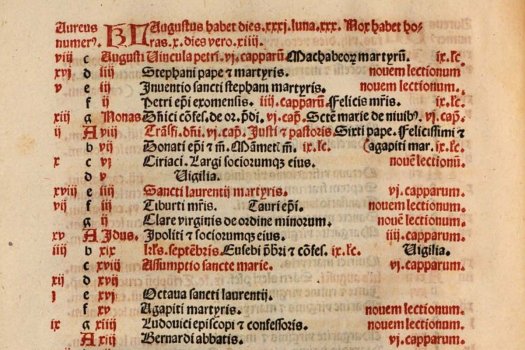 Aureus KL Augustus habet dies .xxxj. luna .xxx. Nox habet ho-
numerꝰ. ras .x. dies vero .xiiii.
viii c Augusti Uincula petri .vj. capparū Machabeoꝝ martyrū. ix. lc̄
xvj d iiij Stephani pape ⁊ martyris. nouem lectionum
v e iij Inuentio sancti stephani martyris. nouem lectionum.
f ij Petri ep̄i exomensis. iiij. capparū. Felicis mr̄is. ix. lc̄
xiij g Nonas Dn̄ici cōfes. de or. p̄di. vj. cap̄. Scte marie de niuibꝰ. vj. cap̄.
ij A viij Trāsfi. dn̄i. vj. cap̄. Justi ⁊ pastoris Sixti pape. Felicissimi ⁊
b vij Donati ep̄i ⁊ m̄. Māmetī m̄. ix. lc̄ (agapiti mar. ix. lc̄
x c vj Ciriaci. Largi sociorumqꝫ eius. nouē lectionū.
d v Uigilia.
xviij e iiij Sancti laurentij martyris. vj. capparum.
vij f iij Tiburti mr̄is. Tauri ep̄i. nouem lectionum
g ij Clare virginis de ordine minorum. nouē lectionum
xv A Jdus. Ipoliti ⁊ sociorumqꝫ eius. iiij. capparum.
iiij b xix Kl's. septēbris Eusebi p̄bri ⁊ cōfes. ix. lc̄. Uigilia.
c xviij Assumptio sancte marie. vj. capparum.
xij d xvij
j e xvj Octaua sancti laurentij.
f xv Agapiti martyris. nouem lectionum.
ix g xiiij Ludouici episcopi ⁊ confessoris. iiij. capparum.
A xiij Bernardi abbatis. vj. capparum.